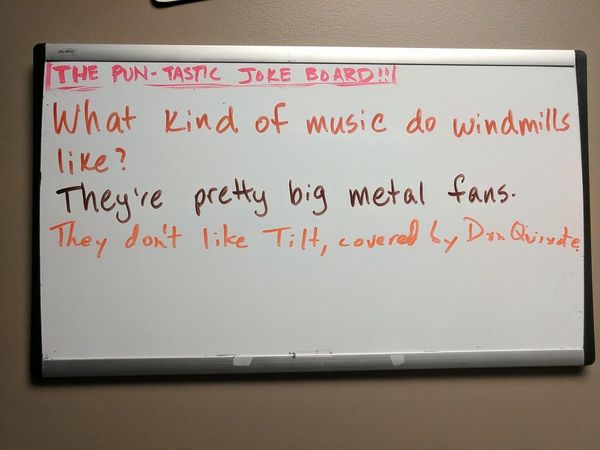 THE PUN-TASTIC JOKE BOARD!!!
What kind of music do windmills
like?
They're pretty big metal fans.
They don't like Tilt, covered by Don Quixote